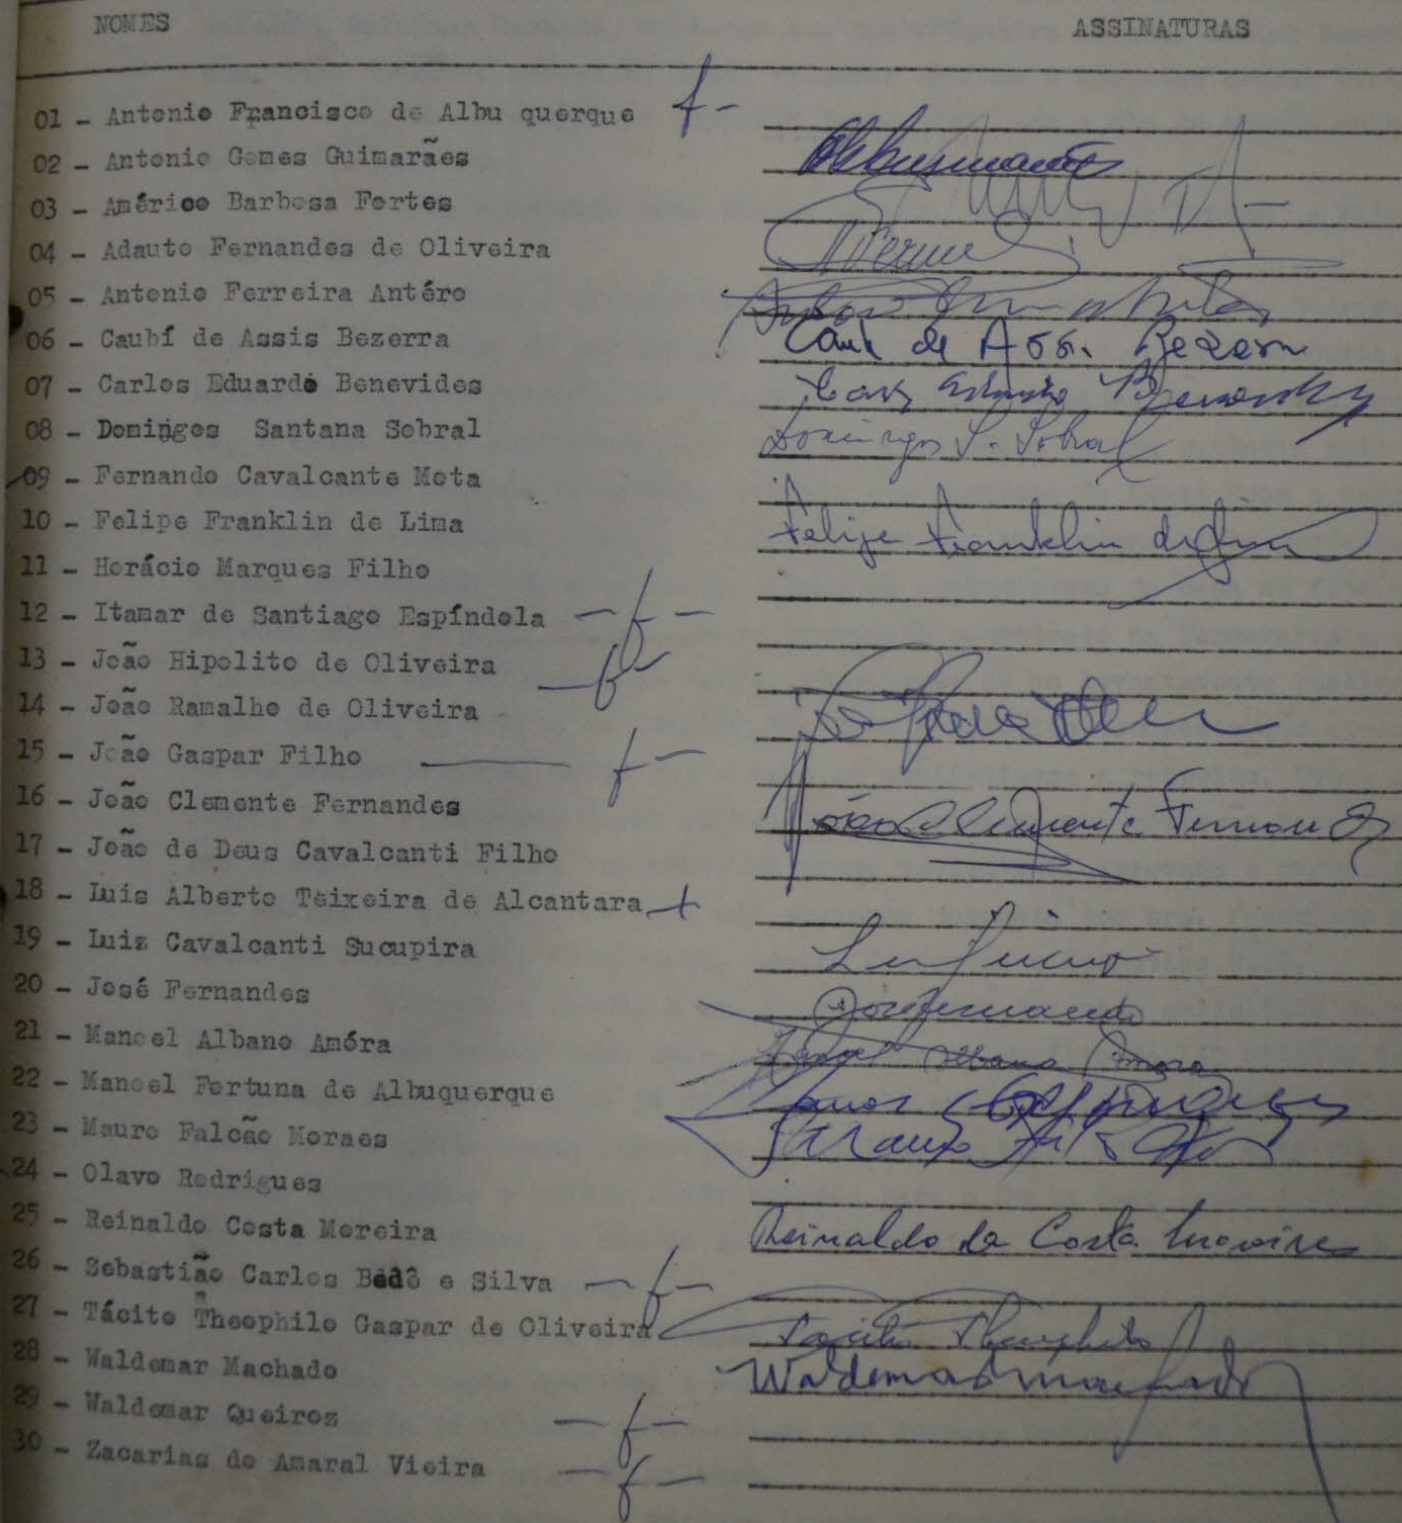 NOMES ASSINATURAS
01 - Antonio Francisco de Albu querque f-
02 - Antonio Gomes Guimarães
03 - Américo Barbosa Fortes
04 - Adauto Fernandes de Oliveira
05 - Antonio Ferreira Antéro
06 - Caubí de Assis Bezerra
07 - Carlos Eduardo Benevides
08 - Domingos Santana Sobral Domingos S. Sobral
09 - Fernando Cavalcante Mota
10 - Felipe Franklin de Lima Felipe Franklin de Lima
11 - Horácio Marques Filho
12 - Itamar de Santiago Espíndola -f-
13 - João Hipolito de Oliveira -f-
14 - João Ramalho de Oliveira
15 - João Gaspar Filho - f -
16 - João Clemente Fernandes João Clemente Fernandes
17 - João de Deus Cavalcanti Filho
18 - Luis Alberto Teixeira de Alcantara f
19 - Luiz Cavalcanti Sucupira
20 - José Fernandes José Fernandes
21 - Manoel Albano Amóra Manoel Albano Amora
22 - Manoel Fortuna de Albuquerque
23 - Mauro Falcão Moraes
24 - Olavo Rodrigues
25 - Reinaldo Costa Moreira Reinaldo da Costa Moreira
26 - Sebastião Carlos Bedê e Silva -f-
27 - Tácito Theophilo Gaspar de Oliveira Tacito Theophilo
28 - Waldemar Machado Waldemar Machado
29 - Waldemar Queiroz -f-
30 - Zacarias do Amaral Vieira -f-